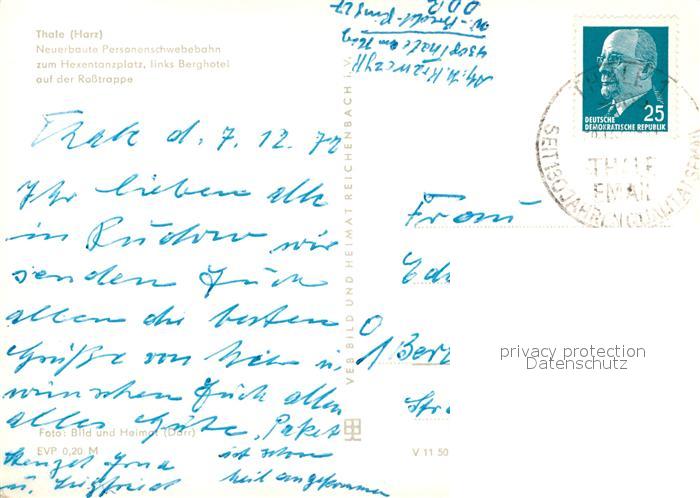 Thale (Harz)
Neuerbaute Personenschwebebahn
zum Hexentanzplatz, links Berghotel
auf der Roßtrappe
Thale d. 7. 12. 72
Ihr lieben alle
in Rudow, wir
senden Euch
allen die besten
Grüße von hier u.
wünschen Euch allen
alles Gute. Paket
ist schon
heil angekommen
u. Siegfried
Foto: Bild und Heimat (Darr)
EVP 0,20 M
V 11 50
VEB BILD UND HEIMAT REICHENBACH i. V.
DDR
DEUTSCHE
DEMOKRATISCHE REPUBLIK
25
THALE
EMAIL
SEIT 180 JAHREN QUALITÄTS
Frau
1 Ber
Str
privacy protection
Datenschutz